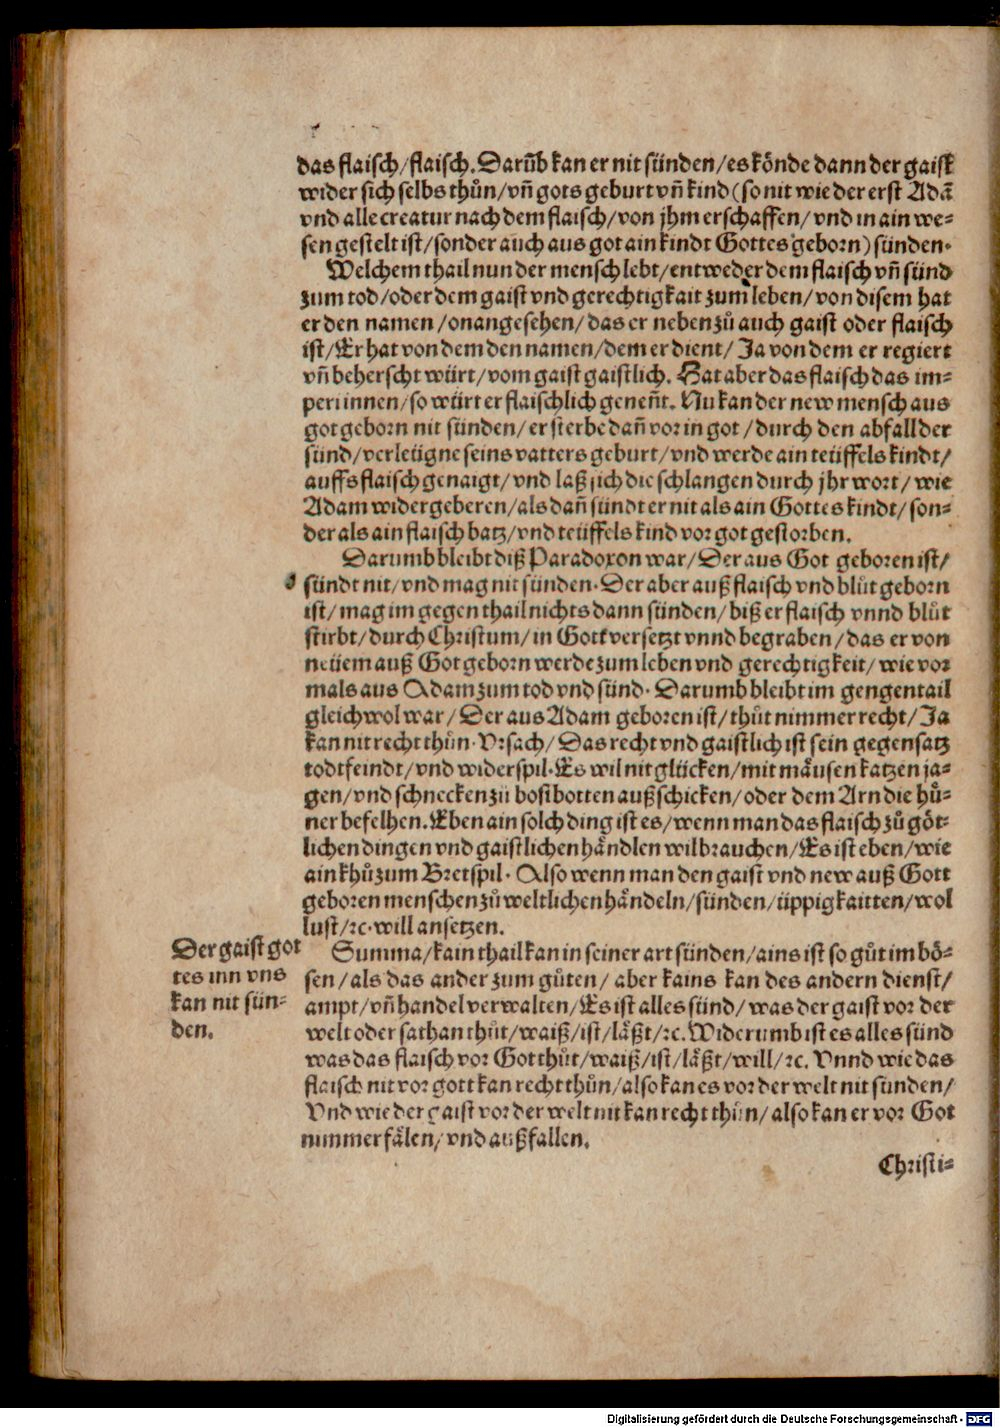 das flaisch/flaisch. Darũb kan er nit sünden/es könde dann der gaist
wider sich selbs thůn/vñ gots geburt vñ kind (so nit wie der erst Adã
vnd alle creatur nach dem flaisch/von jhm erschaffen/vnd in ain we-
sen gestelt ist/sonder auch aus got ain kindt Gottes geborn) sünden.
Welchem thail nun der mensch lebt/entweder dem flaisch vñ sünd
zum tod/oder dem gaist vnd gerechtigkait zum leben/von disem hat
er den namen/onangesehen/das er neben zů auch gaist oder flaisch
ist/Er hat von dem den namen/dem er dient/Ja von dem er regiert
vñ beherscht würt/vom gaist gaistlich. Hat aber das flaisch das im-
peri innen/so würt er flaischlich geneñt. Nu kan der new mensch aus
got geborn nit sünden/er sterbe dañ vor in got/durch den abfall der
sünd/verleügne seins vatters geburt/vnd werde ain teüffels kindt/
auffs flaisch genaigt/vnd laß sich die schlangen durch jhr wort/wie
Adam widergeberen/als dañ sündt er nit als ain Gottes kindt/son-
der als ain flaisch batz/vnd teüffels kind vor got gestorben.
Darumb bleibt diß Paradoxon war/Der aus Got geboren ist/
sündt nit/vnd mag nit sünden. Der aber auß flaisch vnd blůt geborn
ist/mag im gegenthail nichts dann sünden/biß er flaisch vnnd blůt
stirbt/durch Christum/in Gott versetzt vnnd begraben/das er von
neüem auß Got geborn werde zum leben vnd gerechtigkeit/wie vor
mals aus Adam zum tod vnd sünd. Darumb bleibt im gengentail
gleichwol war/Der aus Adam geboren ist/thůt nimmer recht/Ja
kan nit recht thůn. Vrsach/Das recht vnd gaistlich ist sein gegensatz
todtfeindt/vnd widerspil. Es wil nit glücken/mit mäusen katzen ja-
gen/vnd schnecken zů bosibotten außschicken/oder dem Arn die hů-
ner befelhen. Eben ain solch ding ist es/wenn man das flaisch zů göt-
lichen dingen vnd gaistlichen händlen wil brauchen/Es ist eben/wie
ain khů zum Bretspil. Also wenn man den gaist vnd new auß Gott
geboren menschen zů weltlichen händeln/sünden/üppigkaitten/wol
lust/ꝛc. will ansetzen.
Der gaist got
tes inn vns
kan nit sün-
den.
Summa/kain thail kan in seiner art sünden/ains ist so gůt im bö-
sen/als das ander zum gůten/aber kains kan des andern dienst/
ampt/vñ handel verwalten/Es ist alles sünd/was der gaist vor der
welt oder sathan thůt/waiß/ist/läßt/ꝛc. Widerumb ist es alles sünd
was das flaisch vor Got thůt/waiß/ist/läßt/will/ꝛc. Vnnd wie das
flaisch nit vor gott kan recht thůn/also kan es vor der welt nit sünden/
Vnd wie der gaist vor der welt nit kan recht thůn/also kan er vor Got
nimmer fälen/vnd außfallen.
Christi-
Digitalisierung gefördert durch die Deutsche Forschungsgemeinschaft - DFG